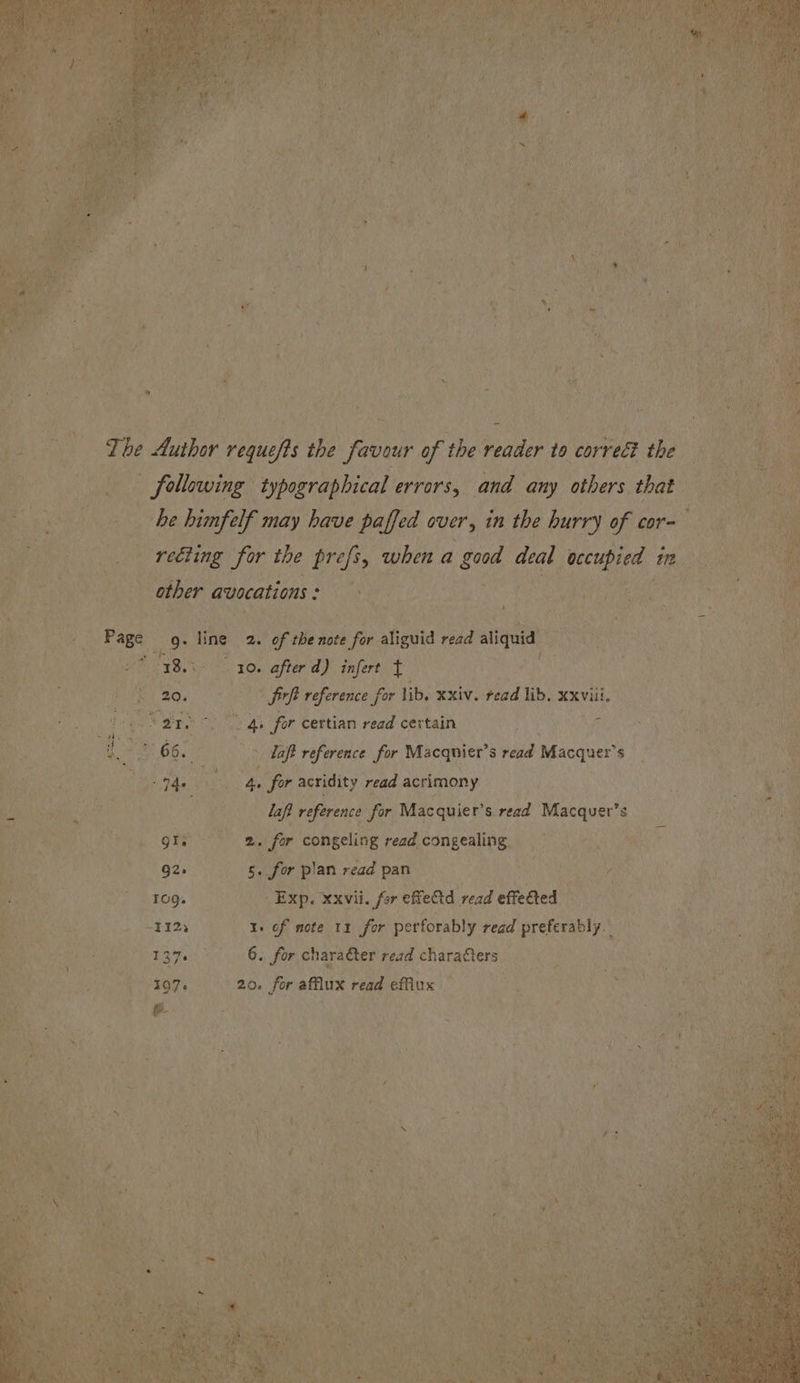 The Author requeſts the favour of the reader to correct the
following typographical errors, and any others that
he himſelf may have paſſed over, in the hurry of cor-
recting for the preſs, when a good deal occupied in
other avocations:
Page 9. line 2. of the note for aliguid read aliquid
18. 10. after d) inſert †
20. firſt reference for lib. xxiv. read lib. xxviii.
21. 4. for certian read certain
66. laſt reference for Macqnier's read Macquer's
74. 4. for acridity read acrimony
laſt reference for Macquier's read Macquer's
91. 2. for congeling read congealing
92. 5. for plan read pan
109. Exp. xxvii. for effectd read effected
112. 1. of note 11 for perforably read preferably
137. 6. for character read characters
197. 20. for afflux read efflux